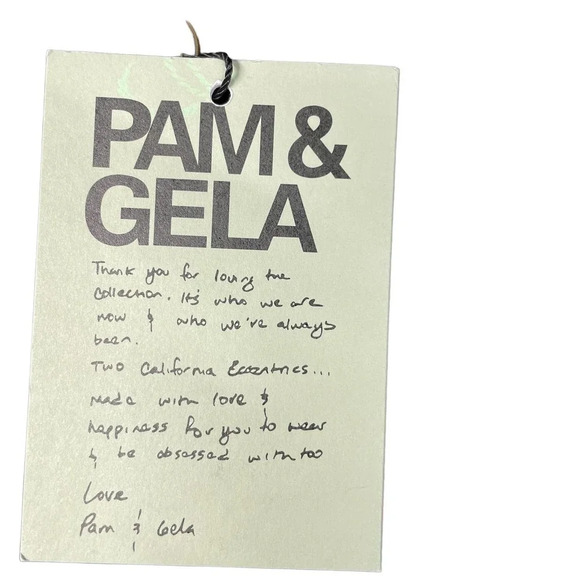 PAM &
GELA
Thank you for loving the
collection. It's who we are
now & who we've always
been.
Two California Eccentrics...
made with love &
happiness for you to wear
& be obsessed with too
Love
Pam & Gela